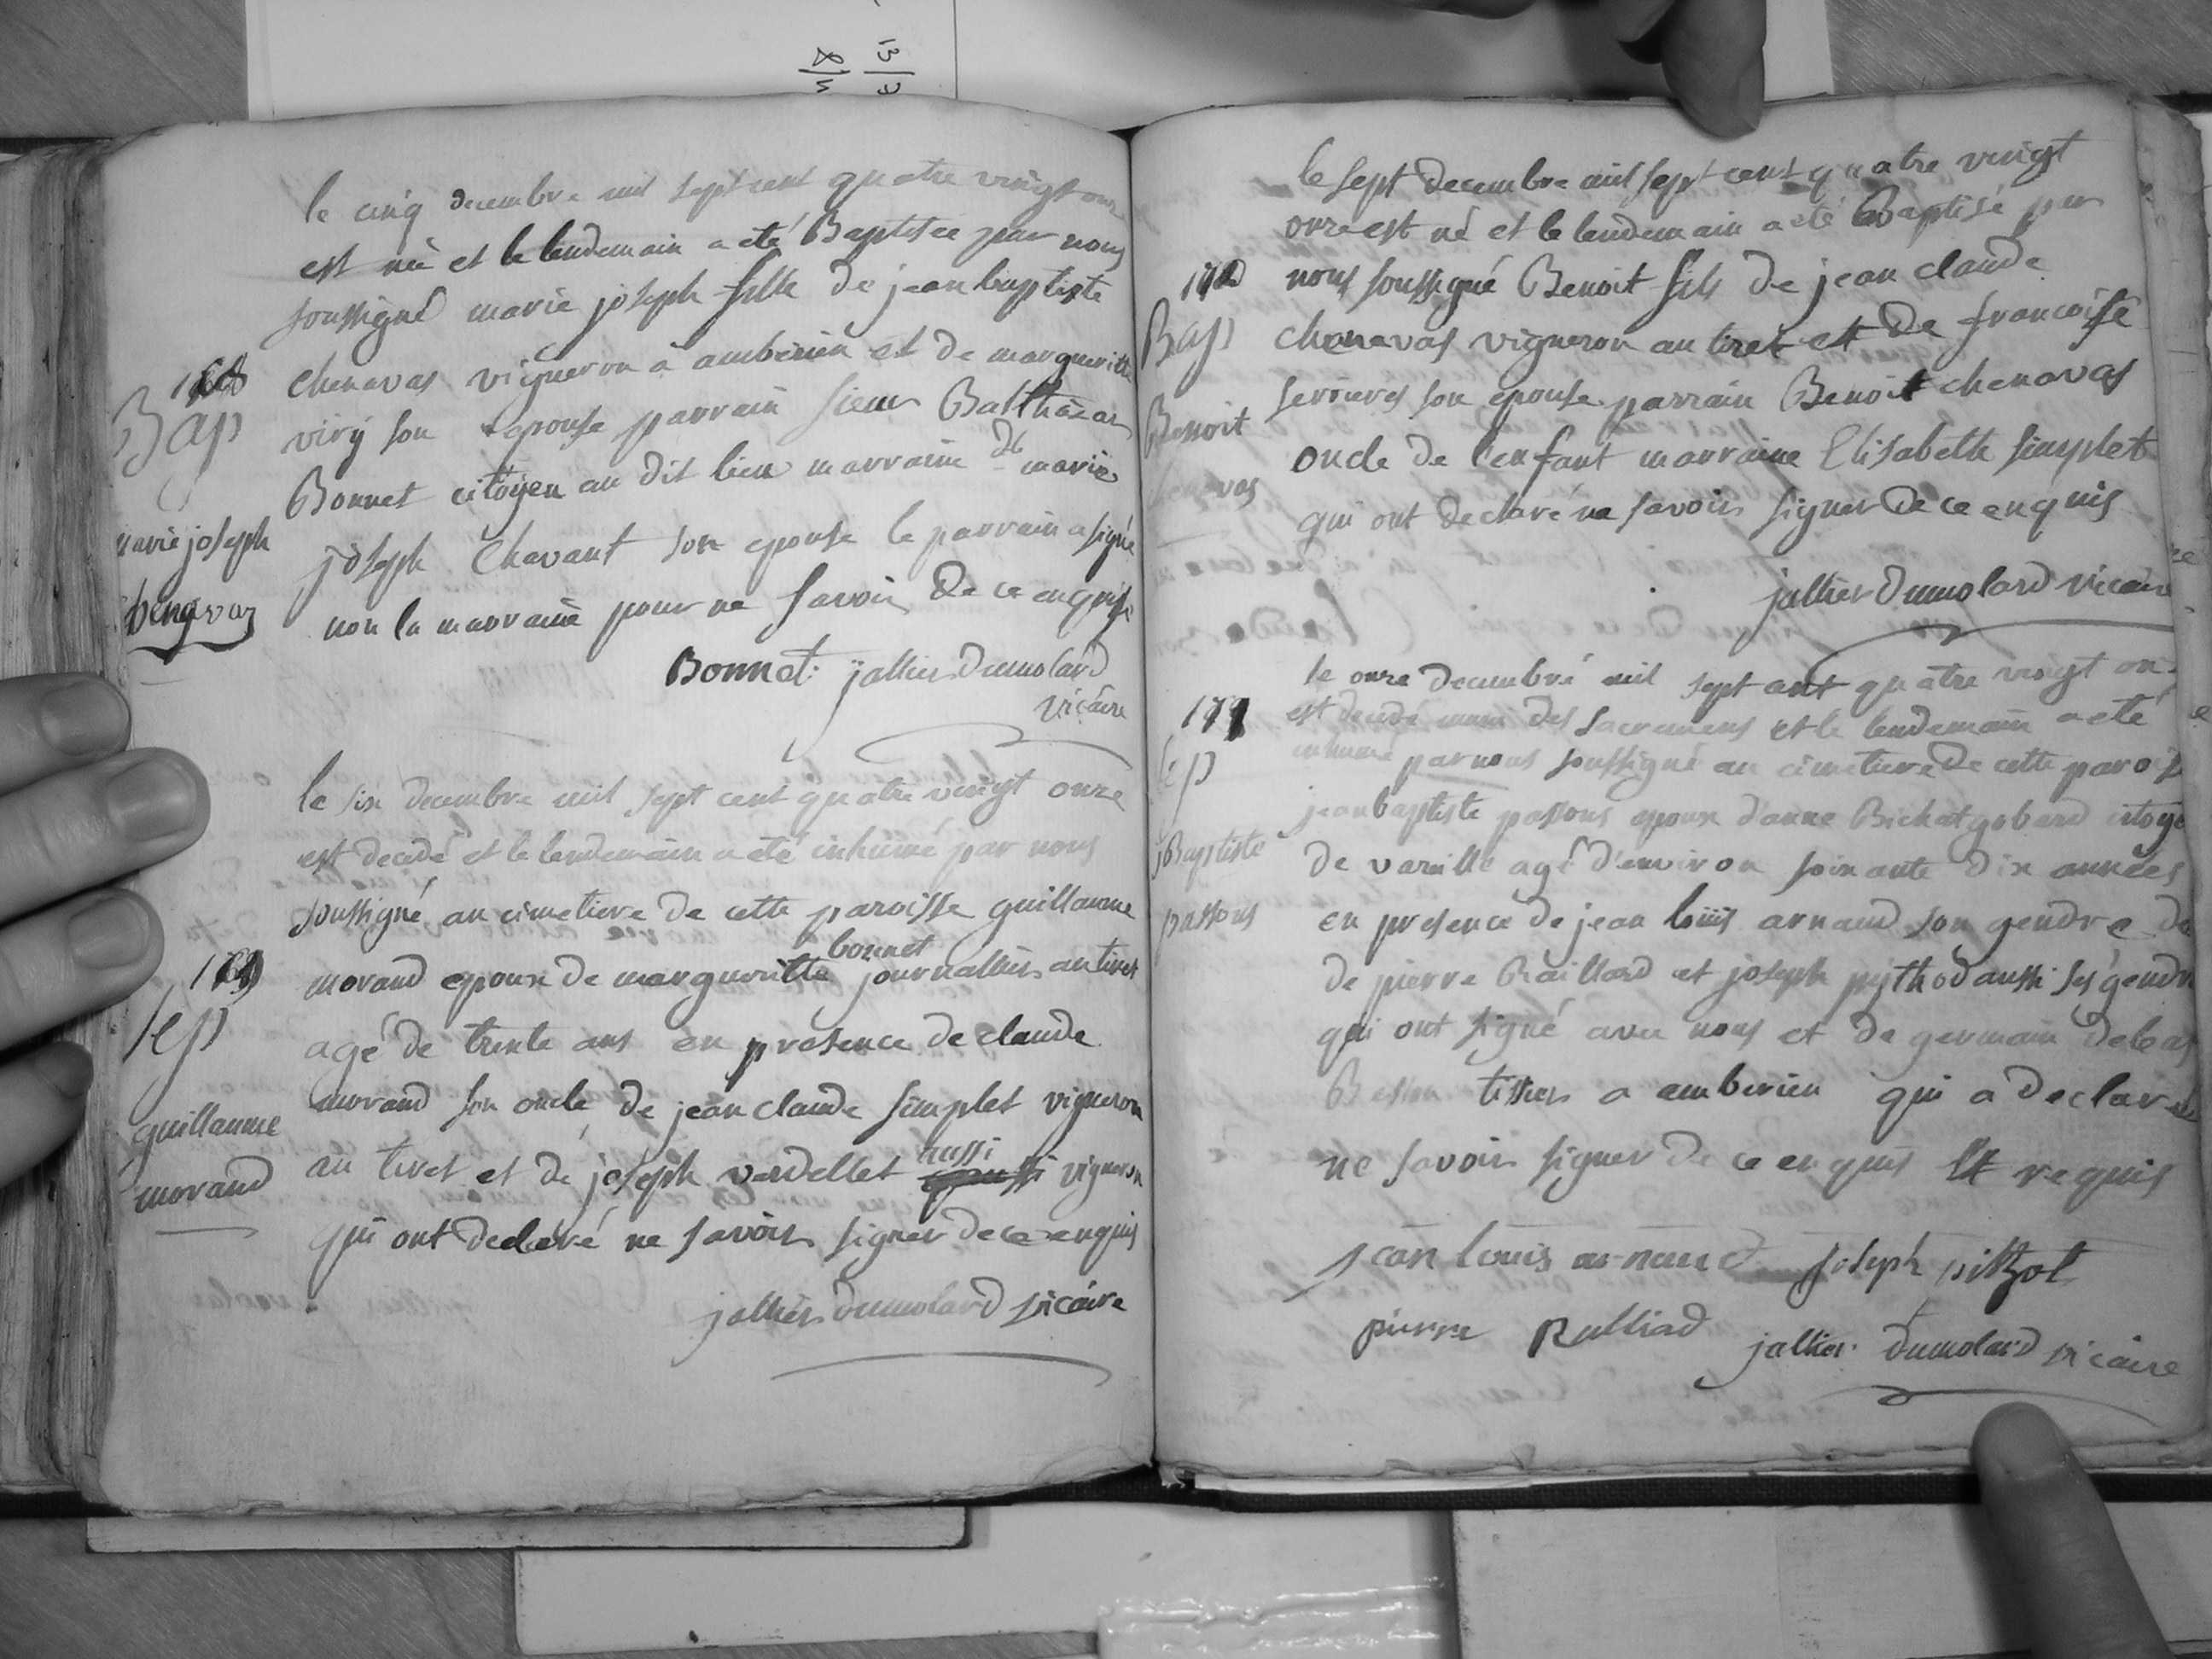 le cinq decembre mil sept cent quatre vingt onze
est née et le lendemain a eté Baptisée par nous
soussigné marie joseph fille de jean baptiste
168
Bap
marie joseph
chenavaz
chenavas vigneron à amberieu et de margueritte
viry son epouse parrain sieur Balthazar
Bonnet citoyen au dit lieu marraine de marie
joseph Chavant son epouse le parrain a signé
non la marraine pour ne savoir de ce enquise
Bonnet jallier dumolard
vicaire
le six decembre mil sept cent quatre vingt onze
est decedé et le lendemain a eté inhumé par nous
soussigné au cimetiere de cette paroisse guillaume
169
sep
guillaume
morand
bonnet
morand epoux de margueritte journallier au tiret
agé de trente ans en presence de claude
morand son oncle de jean claude simplet vigneron
au tiret et de joseph verdellet aussi vigneron
qui ont declaré ne savoir signer de ce enquis
jallier dumolard vicaire
le sept decembre mil sept cent quatre vingt
onze est né et le lendemain a eté Baptisé par
170
Bap
Benoit
nous soussigné Benoit fils de jean claude
chenavas vigneron au tiret et de francoise
serrieres son epouse parrain Benoit chenavas
oncle de l'enfant marraine Elisabeth simplet
qui ont declaré ne savoir signer de ce enquis
jallier dumolard vicaire
le onze decembre mil sept cent quatre vingt on
171
sep
jBaptiste
passous
est decedé muni des sacremens et le lendemain a eté
inhumé par nous soussigné au cimetiere de cette parois
jean baptiste passous epoux d'anne Bichat gobard citoye
de vareille agé d'environ soixante dix années
en presence de jean louis arnaud son gendre de
de pierre Raillard et joseph pithod aussi ses gendr
qui ont signé avec nous et de germain debeas
tissier a amberieu qui a declaré
ne savoir signer de ce enquis et requis
jean louis arnaud joseph pithot
pierre Ralliad jallier dumolard vicaire